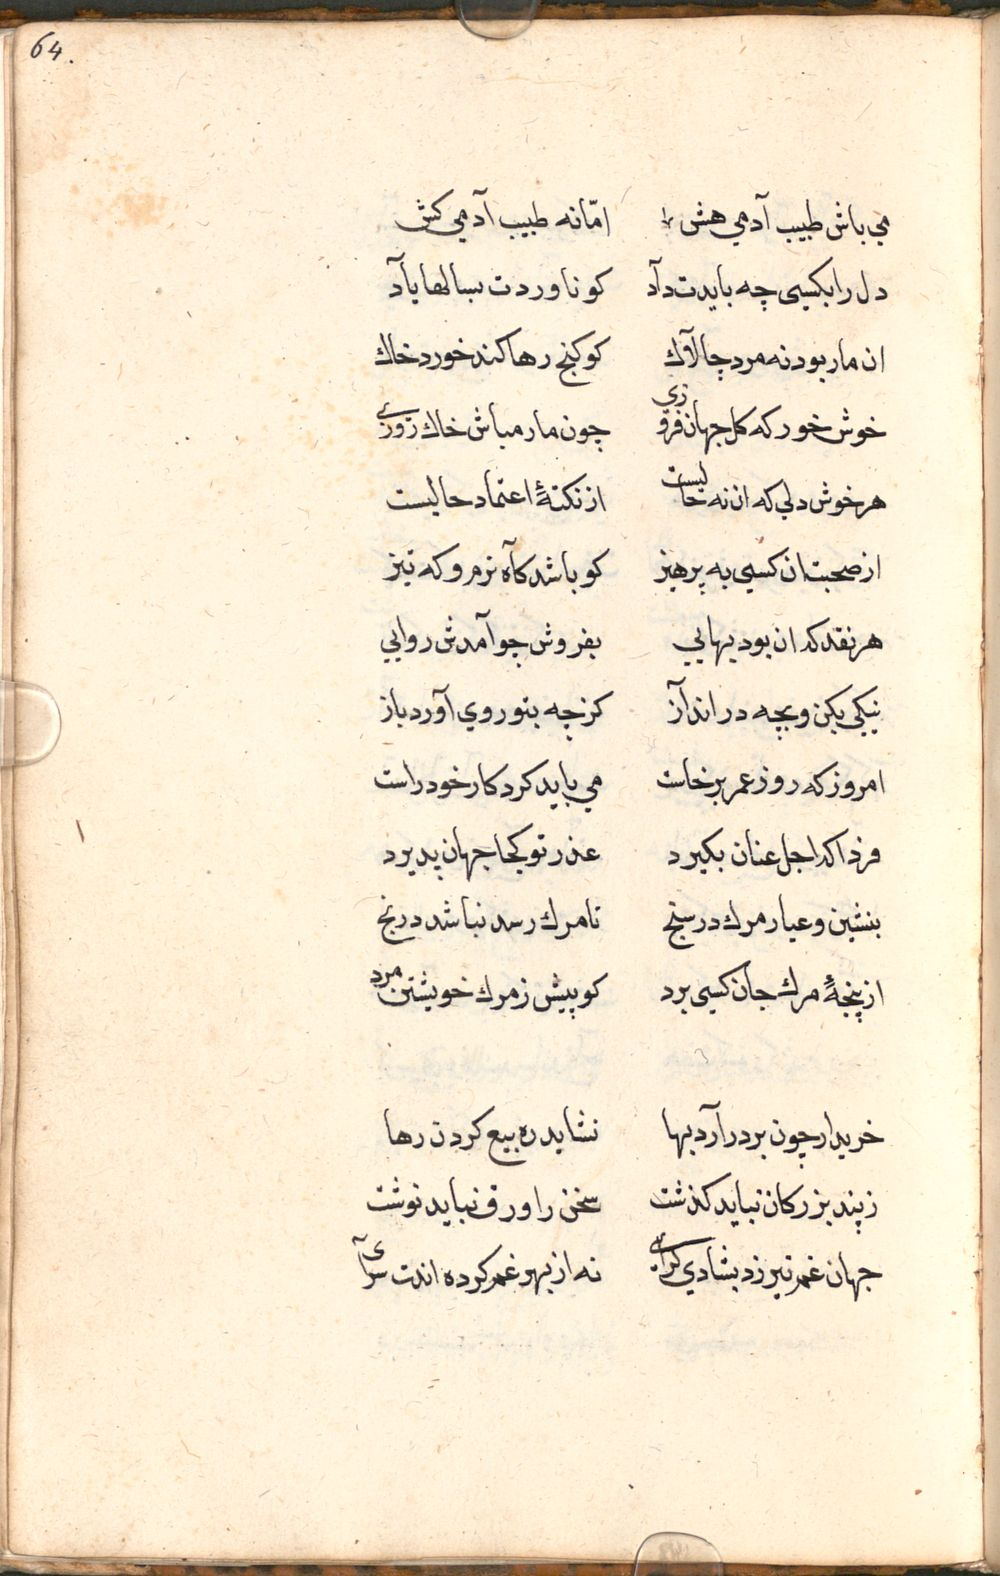 64.
مي باش طبيب آدمي هش امّا نه طبيب آدمي كش
دل را بكسي چه بايدت دآد كو ناوردت بسالها يآد
ان مار بود نه مرد چالآك كو كنج رها كند خورد خاك
خوش خور كه كل جهان فرو زي چون مار مباش خاك روزي
هر خوش دلي كه ان نه حاليست از تكتهٔ اعتماد حاليست
از صحبت ان كسي به پرهيز كو باشد كآه نرم و كه تيز
هر نقد كه ان بود بهايي بفروش چو آمدش روايي
نيكي بكن و بچه در اندآز كز چه بتو روي آورد باز
امروز كه روز عمر برخاست مي بايد كرد كار خود راست
فردا كه اجل عنان بكيرد عذر تو كجا جهان پديرد
بنشين و عيار مرك در سنج تا مرك رسد نباشد در نج
از پنجهٔ مرك جان كسي برد كو پيش ز مرك خويشتن مرد
خريدار چون بر در آرد بها نشايد ره بيع كردن رها
ز پند بزركان نبايد كذشت سخن را ورق نبايد نوشت
جهان غم نيرزد بشادي كراي نه از بهر غم كرده اندت سرآي